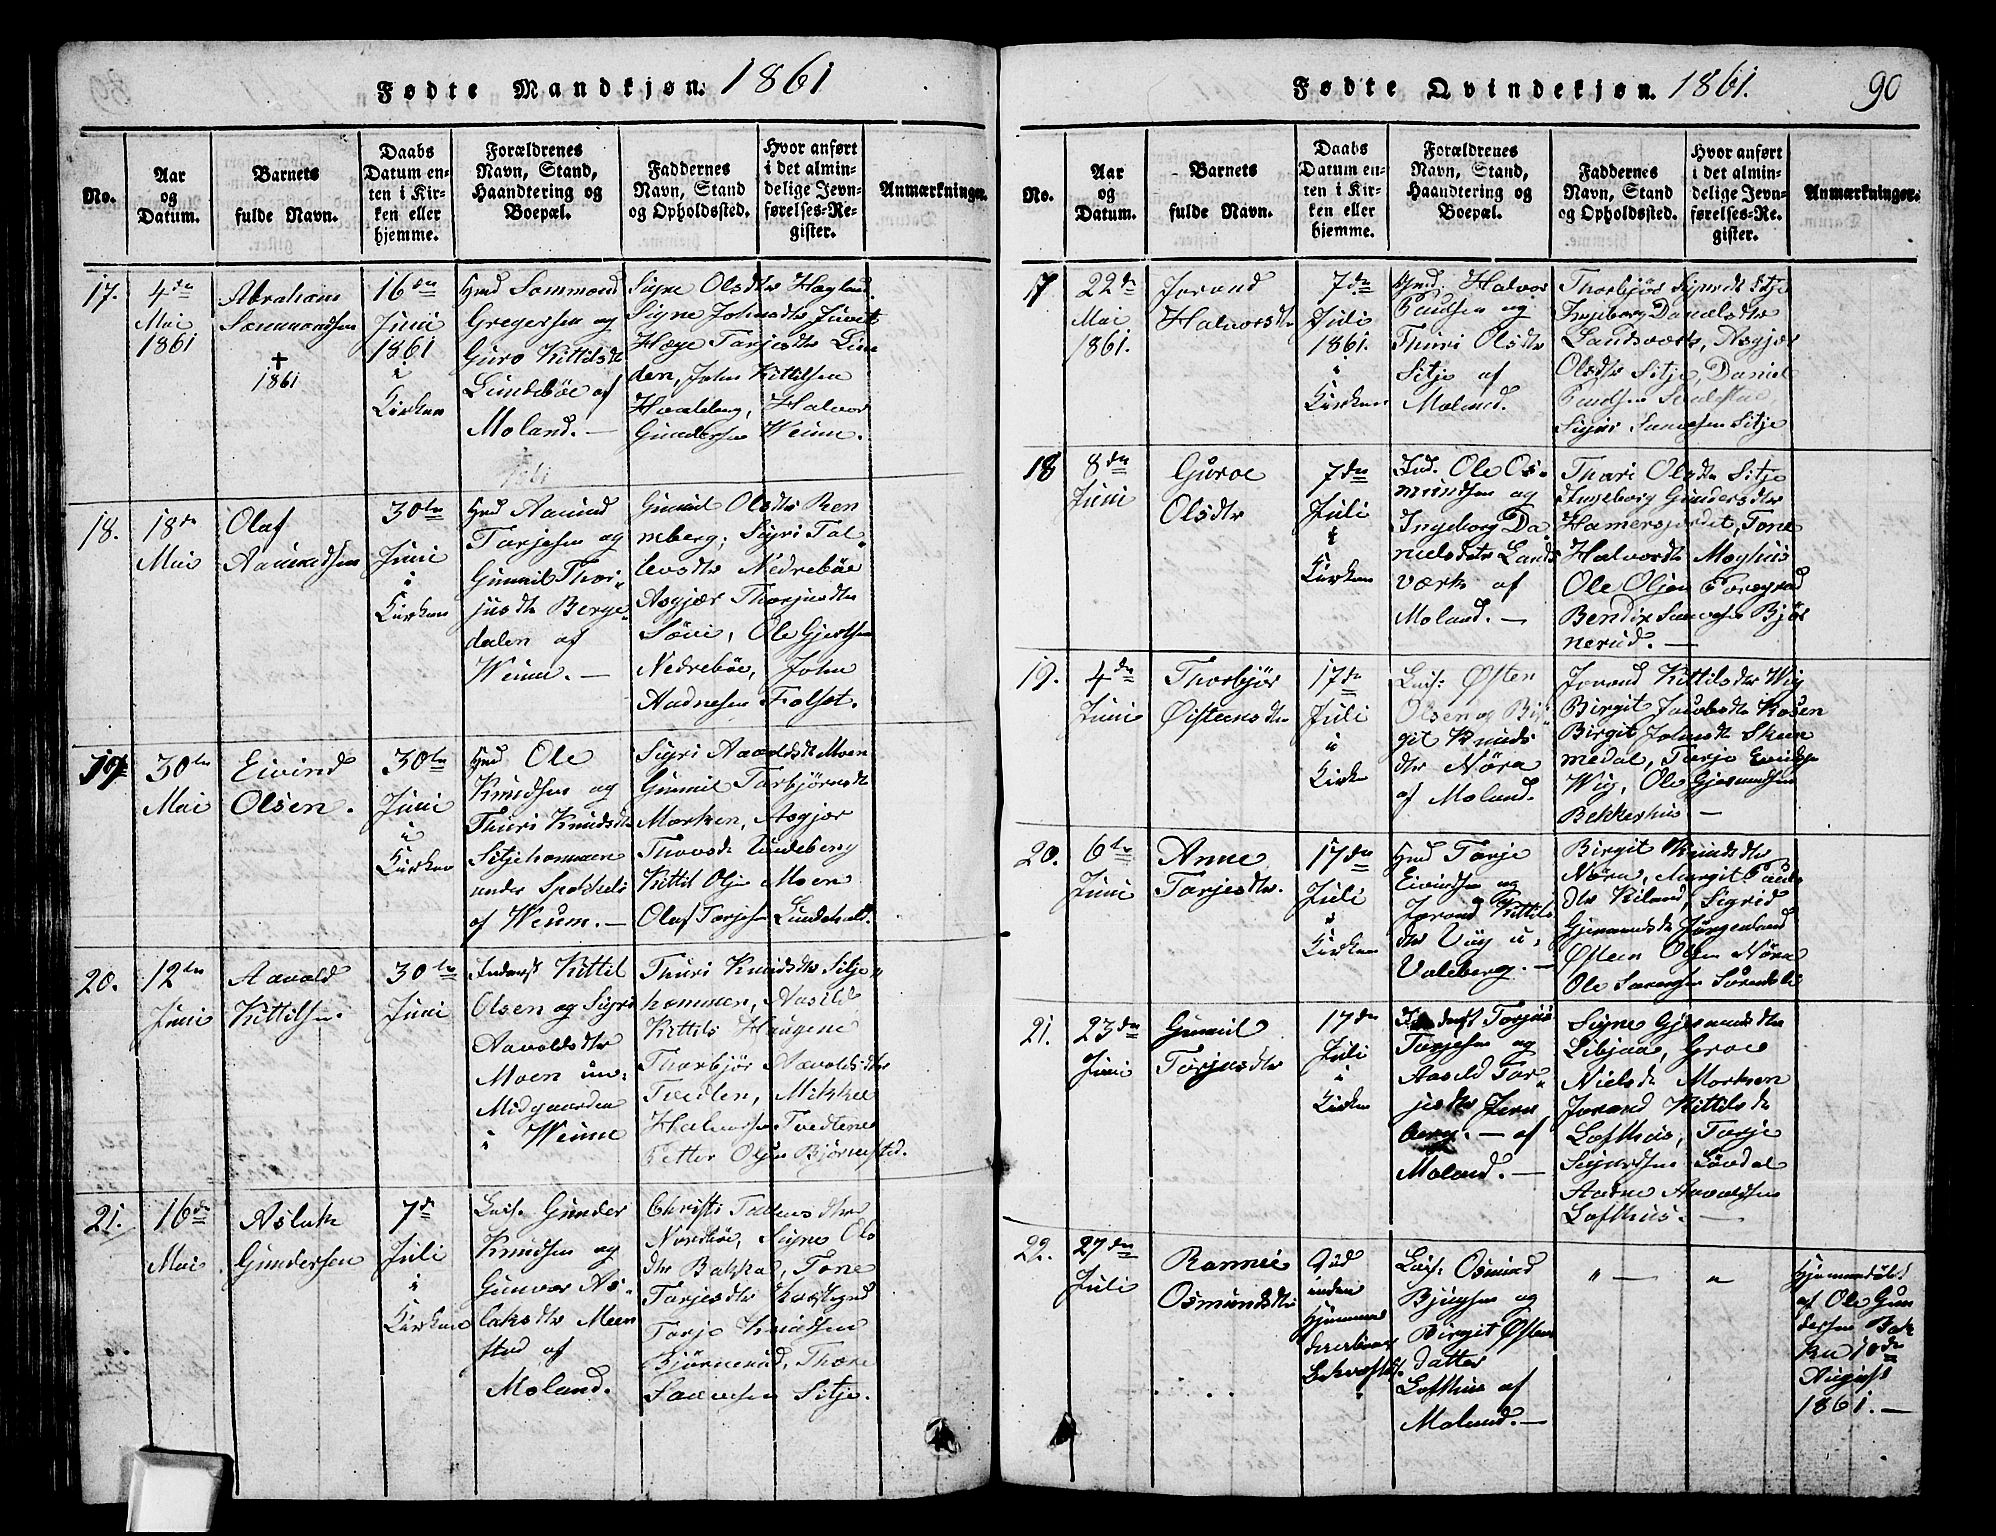 Fødte Mandkjøn. 1861
No.
Aar
og
Datum.
Barnets
fulde Navn.
Daabs
Datum en-
ten i Kir-
ken eller
hjemme.
Forældrenes
Navn, Stand,
Haandtering og
Boepæl.
Faddernes
Navn, Stand
og Opholdssted.
Hvor anført
i det almin-
delige Jevn-
førelses-Re-
gister.
Anmærkninger.
17.
4de
Mai
1861
Abraham
Sammondsen
✝
1861
16den
Juni
1861
i
Kirken
Hmd Sammond
Gregersen og
Guro Kittilsdtr
Lundebøe af
Moland. —
Signe Olsdtr Haglund
Signe Johnsdtr Juvet
Hæge Tarjesdtr Lin
den, John Kittilsen
Hvaleberg, Halvor
Gundersen Weum.
18.
18de
Mai
Olaf
Aamundsen
30te
Juni
i
Kirken
Hmd Aamund
Tarjesen og
Gunnil Thor-
jusdtr Berge-
dalen af
Weum. —
Gunnil Olsdtr Ren
mberg, Sigri Tal-
levsdtr Nedrebøe
Asgjær Thorjusdtr
Søvi, Ole Gjertsen
Nedrebøe, John
Aadnesen Folset.
19
30te
Mai
Eivind
Olsen.
30te
Juni
i
Kirken
Hmd Ole
Knudsen og
Thuri Knudsdtr
Sitjehommen
under
af Weum. —
Sigri Aavoldsdtr Moen
Gunnil Torbjørnsdtr
Morken, Asgjær
Thovsdtr Lundeberg
Kittil Olsen Moen
Olaf Tarjesen
20.
12te
Juni
Aavold
Kittilsen.
30te
Juni
Inderst Kittil
Olsen og Sigri
Aavoldsdtr
Moen un-
Midgaarden
i Weum
Thuri Knudsdtr Sitje-
hommen, Aasild
Kittils Haugene
Thorbjør Aavoldsdtr
Tveiten, Mikkel
Halvorsen Tvedtene
Petter Olsen Bjørnsted.
21.
16de
Mai
Aslak
Gundersen
7de
Juli
i
Kirken
Leif: Gunder
Knudsen og
Gunvor As-
laksdtr Meen
stad af
Moland.
Christi Tallevsdtr
Nordbøe, Signe Ols
dtr Bakka, Tone
Tarjesdtr
Tarje Knudsen
Bjørnerud, Thore
Saavesen Sitje.
Fødte Qvindekjøn. 1861.
90
No.
Aar
og
Datum.
Barnets
fulde Navn.
Daabs
Datum en-
ten i Kir-
ken eller
hjemme.
Forældrenes
Navn, Stand,
Haandtering og
Boepæl.
Faddernes
Navn, Stand
og Opholdssted.
Hvor anført
i det almin-
delige Jevn-
førelses-Re-
gister.
Anmærkninger.
17
22de
Mai
1861.
Jorand
Halvorsdtr
7de
Juli
1861.
i
Kirken
Hmd. Halvor
Paulsen og
Thuri Olsdtr
Sitje af
Moland.
Thorbjør Sitje
Ingeborg Danielsdtr
Landsverk, Asgjær
Olsdtr Sitje, Daniel
Paulsen
Sigri Saavesen Sitje
18
8de
Juni
Guroe
Olsdtr
7de
Juli
i
Kirken
Ind. Ole Os-
mundsen og
Ingeborg Da-
nielsdatr Lands
værk af
Moland. —
Thuri Olsdtr Sitje
Ingeborg Gundersdtr
Tone
Halvorsdtr Moghus
Ole Olsen
Bendix Saavesen Bjør
nerud. —
19.
4de
Juni
Thorbjør
Øistensdtr
17de
Juli
i
Kirken
Leif: Østen
Olsen og Bir-
git Knuds
dtr Nöra
af Moland.
Jorand Kittilsdtr Wig
Birgit Jacobsdtr Kosen
Birgit Johnsdtr Skun
medal, Tarje
Wig, Ole Gjermundsen
Bekkeshus —
20.
6te
Juni
Anne
Tarjesdtr.
17de
Juli
i
Kirken
Hmd Tarje
Eivindsen og
Jorand Kittils
dtr Viig u.
Valeberg. —
Birgit Knudsdtr
Nöra, Margit Pauls
dtr Kiland, Sigrid
Gjermundsdtr Jörgenland
Østen Olsen Nöra
Ole Saavesen
21.
23de
Juni
Gunnil
Torjusdtr
17de
Juli
i
Kirken
Inderst Torjus
Tarjesen og
Aasild Tar-
jesdtr
berg. — af
Moland. —
Signe Gjermundsdtr
Libjaa, Groe
Nielsdtr Morksen
Jorand Kittilsdtr
Lofthus, Tarje
Sigurdsen
Aadne Aavoldsen
Lofthus. —
22.
27de
Juli
Rannei
Osmundsdtr
Død
inden
Hjemme
daabens
Leif: Osmund
Bjugsen og
Birgit Østens
datter
Lofthus af
Moland. —
" — "
Hjemmedøbt
af Ole Gun
dersen Bak
ka 10de
August
1861. —